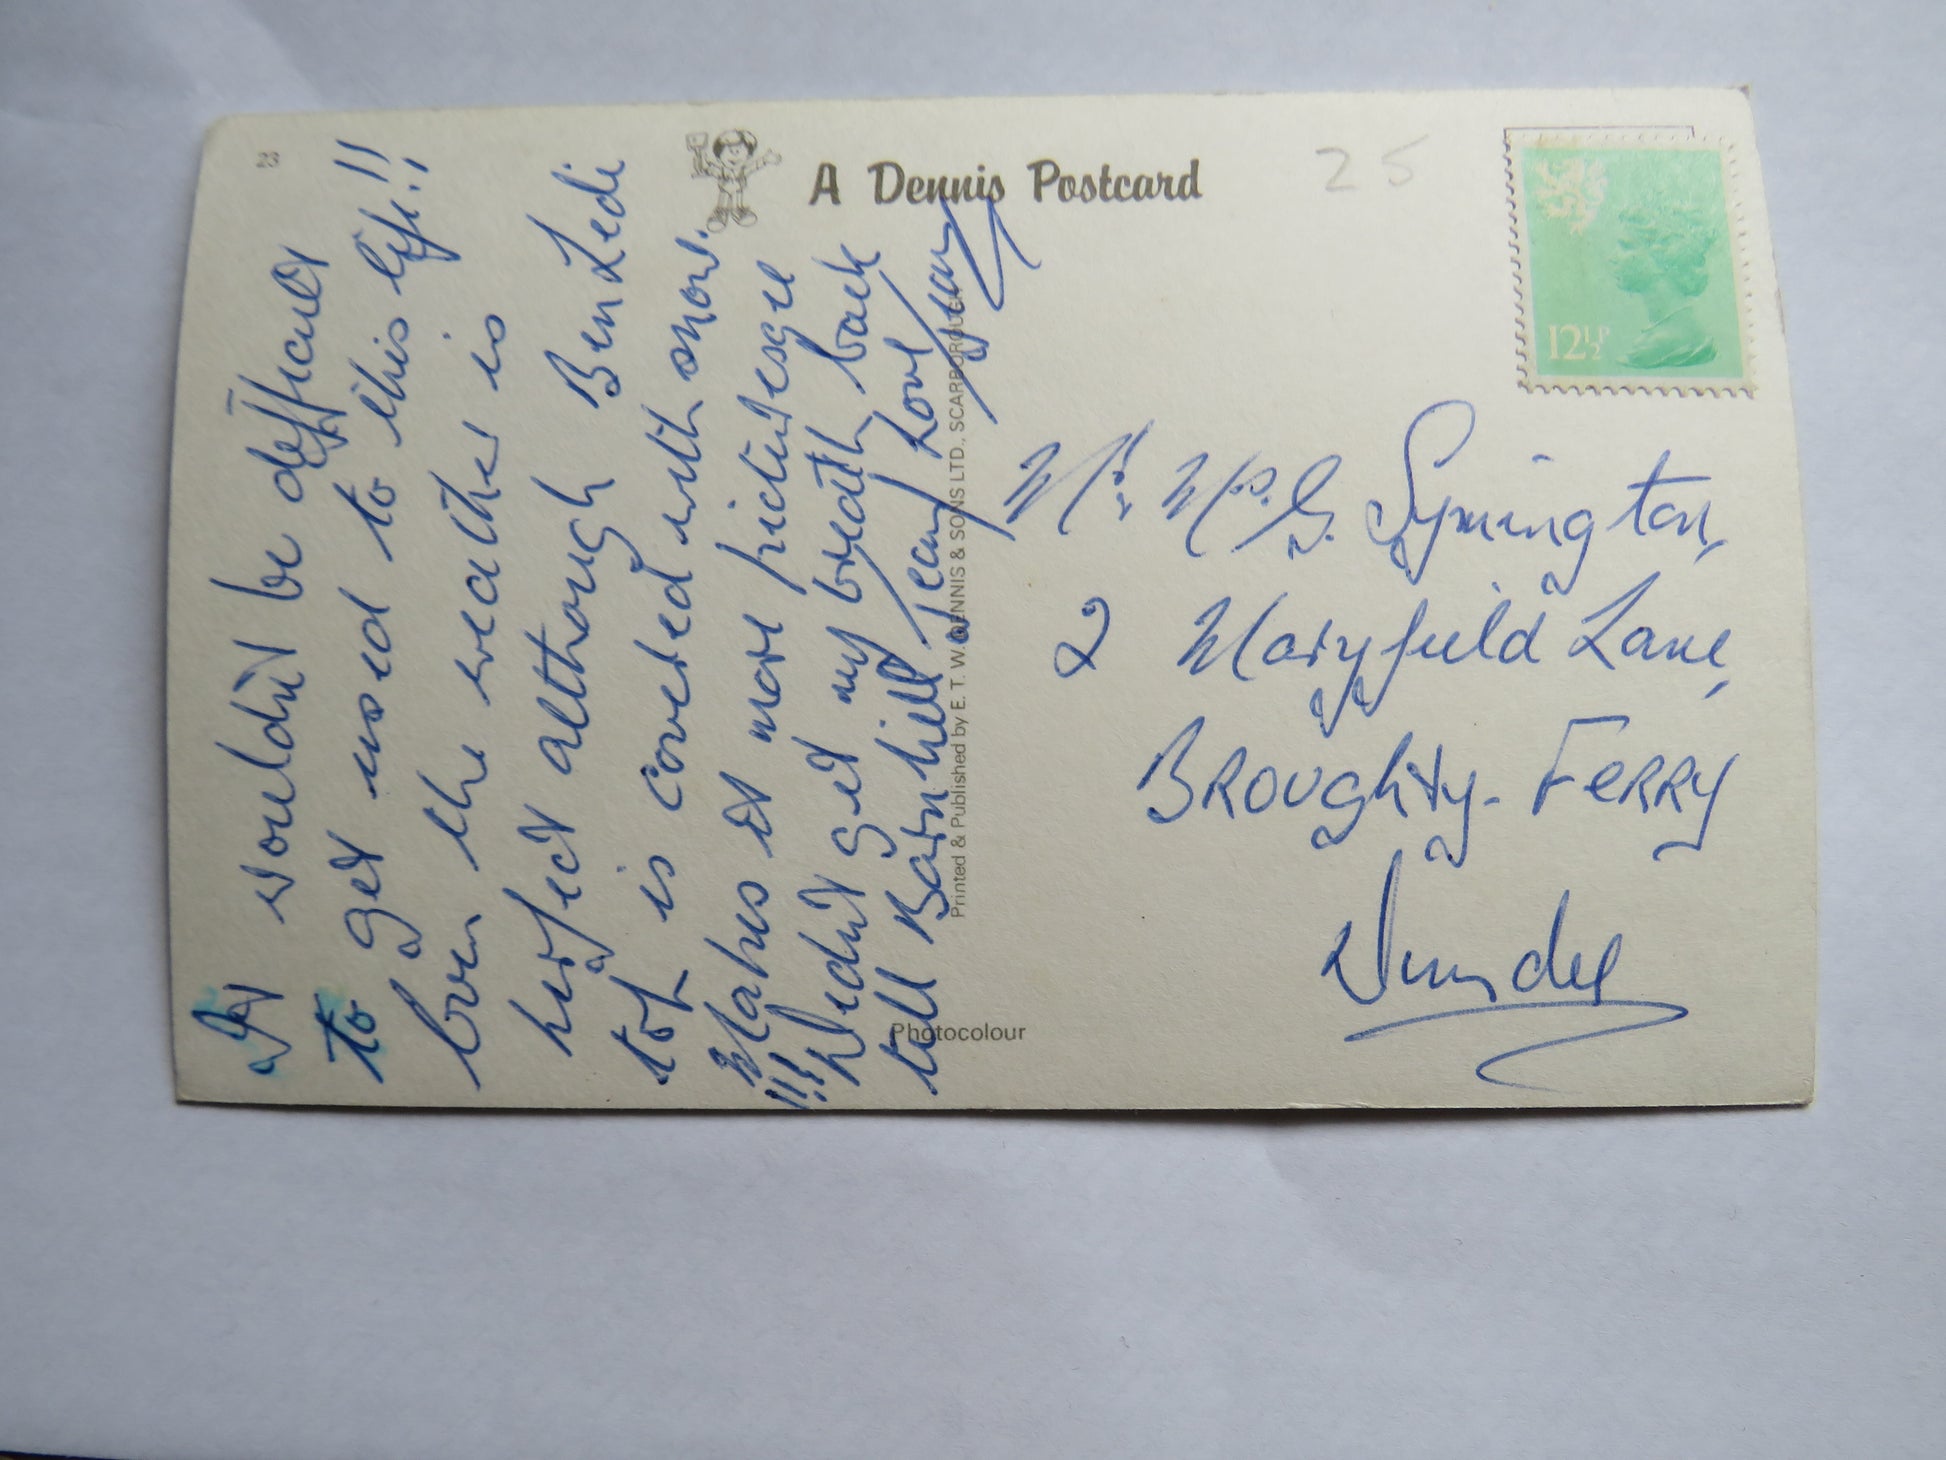 23
A Dennis Postcard
25
12½P
It wouldn't be difficult
to get used to this life!!
Even the weather is
perfect although Ben Ledi
top is covered with snow.
Makes it more picturesque
!!! Didn't get my breath back
till Barnhill Love
Printed & Published by E. T. W. DENNIS & SONS LTD., SCARBOROUGH
Photocolour
Mr. Mrs. G. Symington,
2 Maryfield Lane,
BROUGHTY-FERRY
Dundee